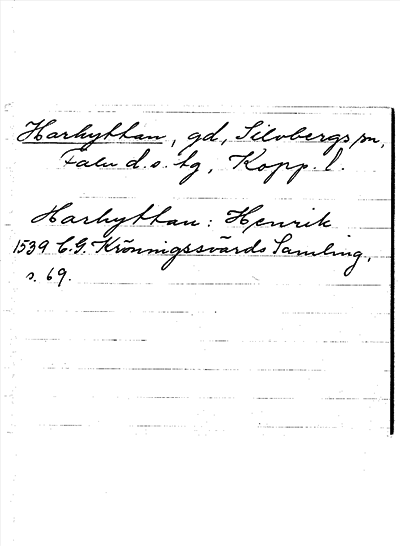 Harhyttan, gd, Silvbergs sn,
Falu d.s. tg, Kopp. l.
Harhyttan: Henrik
1539 C.G. Krönnigssvärds Samling,
s. 69.